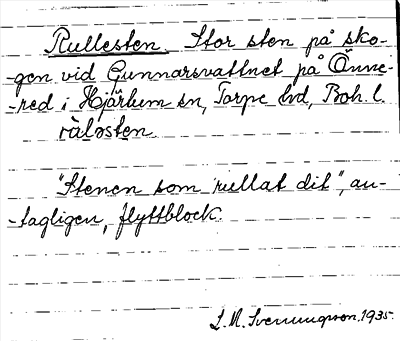 Rullesten. Stor sten på sko-
-gen vid Gunnarsvattnet på Änne-
-red i Hjärtum sn, Torpe hd, Boh. l.
rùləsten.
"Stenen som rullat dit", an-
-tagligen, flyttblock.
L. M. Svenungsson. 1935.